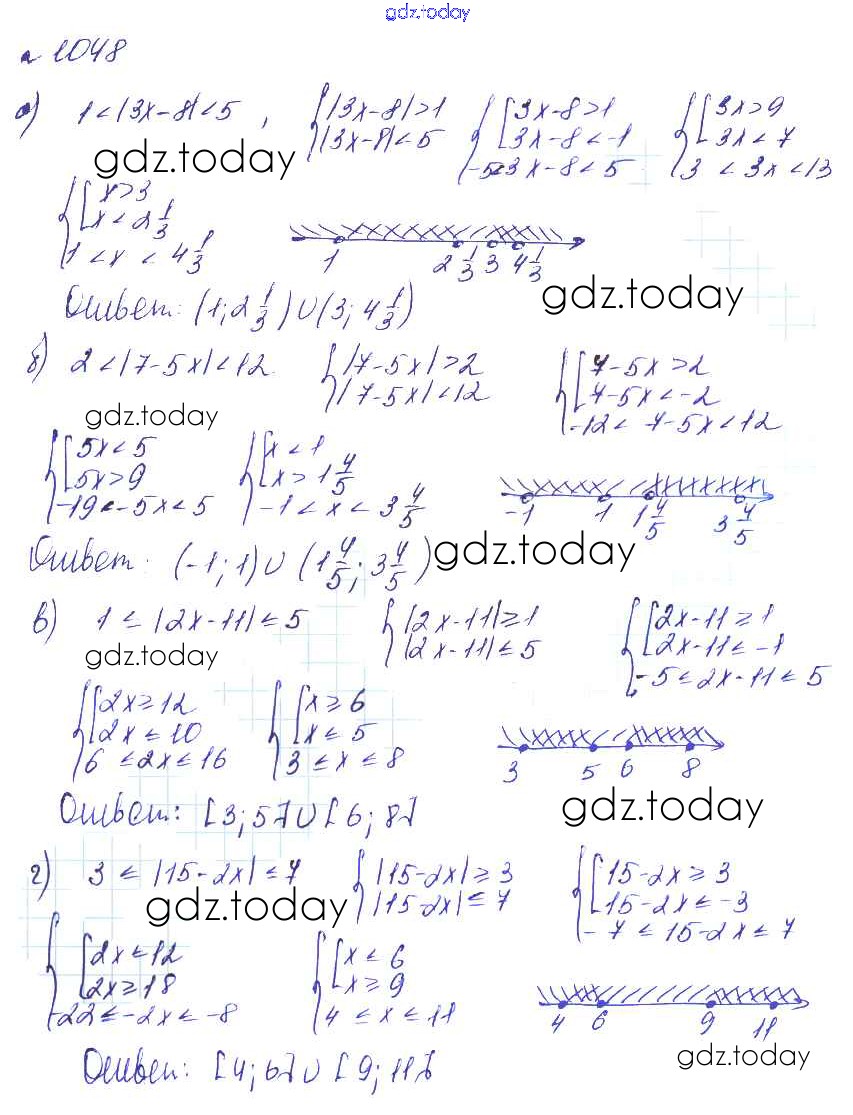 gdz.today
№ 1048
а) 1<|3x-8|<5, { |3x-8|>1 |3x-8|<5 { [ 3x-8>1 3x-8<-1 -5<3x-8<5 { [ 3x>9 3x<7 3<3x<13
gdz.today
{ [ x>3 x<2 1/3 1<x<4 1/3
1 2 1/3 3 4 1/3
Ответ: (1; 2 1/3)∪(3; 4 1/3)
gdz.today
б) 2<|7-5x|<12 { |7-5x|>2 |7-5x|<12 { [ 7-5x>2 7-5x<-2 -12<7-5x<12
gdz.today
{ [ 5x<5 5x>9 -19<-5x<5 { [ x<1 x>1 4/5 -1<x<3 4/5
-1 1 1 4/5 3 4/5
Ответ: (-1; 1)∪(1 4/5; 3 4/5)
gdz.today
в) 1≤|2x-11|≤5 { |2x-11|≥1 |2x-11|≤5 { [ 2x-11≥1 2x-11≤-1 -5≤2x-11≤5
gdz.today
{ [ 2x≥12 2x≤10 6≤2x≤16 { [ x≥6 x≤5 3≤x≤8
3 5 6 8
Ответ: [3; 5]∪[6; 8]
gdz.today
г) 3≤|15-2x|≤7 { |15-2x|≥3 |15-2x|≤7 { [ 15-2x≥3 15-2x≤-3 -7≤15-2x≤7
gdz.today
{ [ 2x≤12 2x≥18 -22≤-2x≤-8 { [ x≤6 x≥9 4≤x≤11
4 6 9 11
gdz.today
Ответ: [4; 6]∪[9; 11]